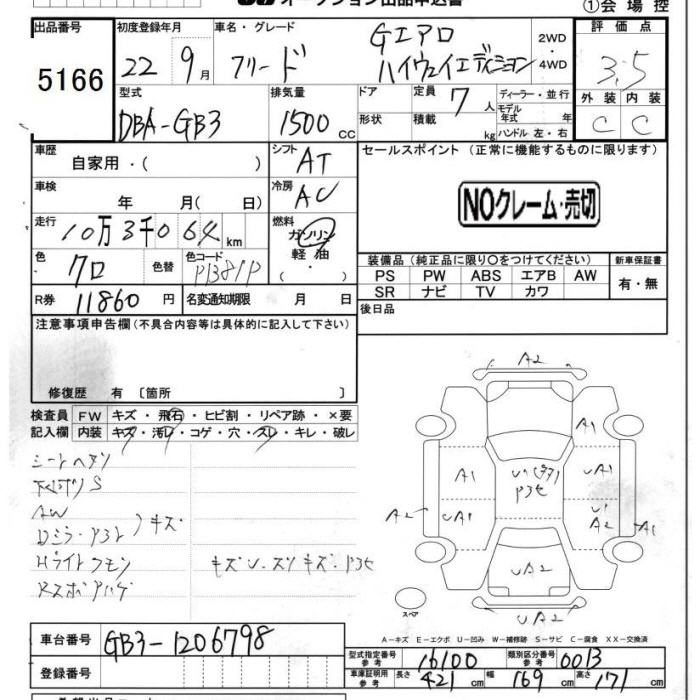 オークション出品申込書 ①会場控
出品番号 初度登録年月 車名・グレード 評価点
5166 22年 9月 フリード Gエアロ ハイウェイエディション 2WD・4WD 3.5
型式 排気量 ドア 定員 7人 ディーラー・並行 外装 内装
DBA-GB3 1500cc 形状 積載 kg モデル年式 年式 ハンドル 左・右 C C
車歴 自家用・( ) シフト AT セールスポイント(正常に機能するものに限ります)
車検 年 月( 日) 冷房 AC
NOクレーム・売切
走行 10万3千064km 燃料 ガソリン・軽油・( )
色 クロ 色替 色コード
装備品(純正品に限り○をつけてください) 新車保証書
PS PW ABS エアB AW 有・無
SR ナビ TV カワ
R券 11860円 名変通知期限 月 日 後日品
注意事項申告欄(不具合内容等は具体的に記入して下さい)
修復歴 有〔箇所 〕
検査員 FW キズ・飛石・ヒビ割・リペア跡・×要
記入欄 内装 キズ・汚レ・コゲ・穴・スレ・キレ・破レ
シートヘタリ
下廻サビS
AW
キズ
Hライトクモリ
A2
A1 A1
A2 UA1 U1 A2 A1
UA2
スペア UA2
A-キズ E-エクボ U-凹み W-補修跡 S-サビ C-腐食 XX-交換済
車台番号 GB3-1206798
登録番号
型式指定番号 参考 16100 類別区分番号 参考 0013
車庫証明用 参考 長さ 421cm 幅 169cm 高さ 171cm